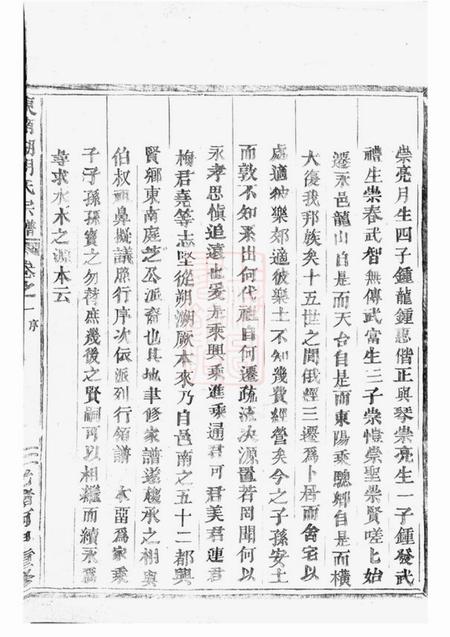 崇亮月生四子鍾龍鍾憇偕正與琴崇亮生一子鍾發武
禮生崇春武智無傳武富生三子崇愷崇聖崇賢嗟乜始
遷永邑龍山自是而天台自是而東陽乘驄鄉自是而橫
大復我那族矣十五世之間俄經三遷為卜居而舍宅以
處適彼樂郊適彼樂土不知幾費經營矣今之子孫安土
而敦不知來出何代祖自何遷疏流決源置若罔聞何以
永孝思慎追遠也爰是乘興乘進乘通君可君美君蓮君
梅君堯等志堅從朔溯厥本來乃自邑南之五十二都興
賢鄉東南庭芝公派裔也具地聿修家譜遂權承之相與
伯叔祖鼻擬議照行序次依派列行領譜本畱為家乘
子子孫孫寶之勿替庶幾後之賢嗣可以相繼而續永為
尋求水木之源本云
胡氏宗譜
卷之一序